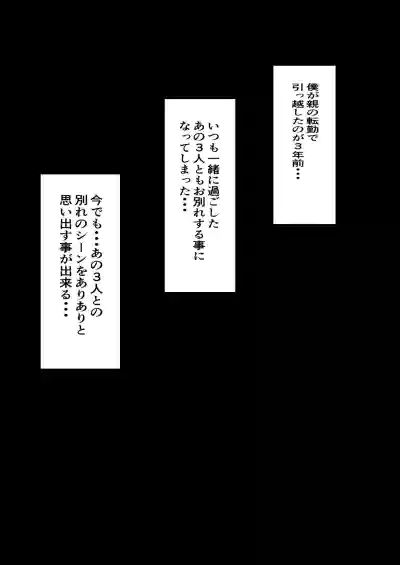 僕が親の転勤で
引っ越したのが３年前・・・
いつも一緒に過ごした
あの３人ともお別れする事に
なってしまった・・・
今でも・・・あの３人との
別れのシーンをありありと
思い出す事が出来る・・・